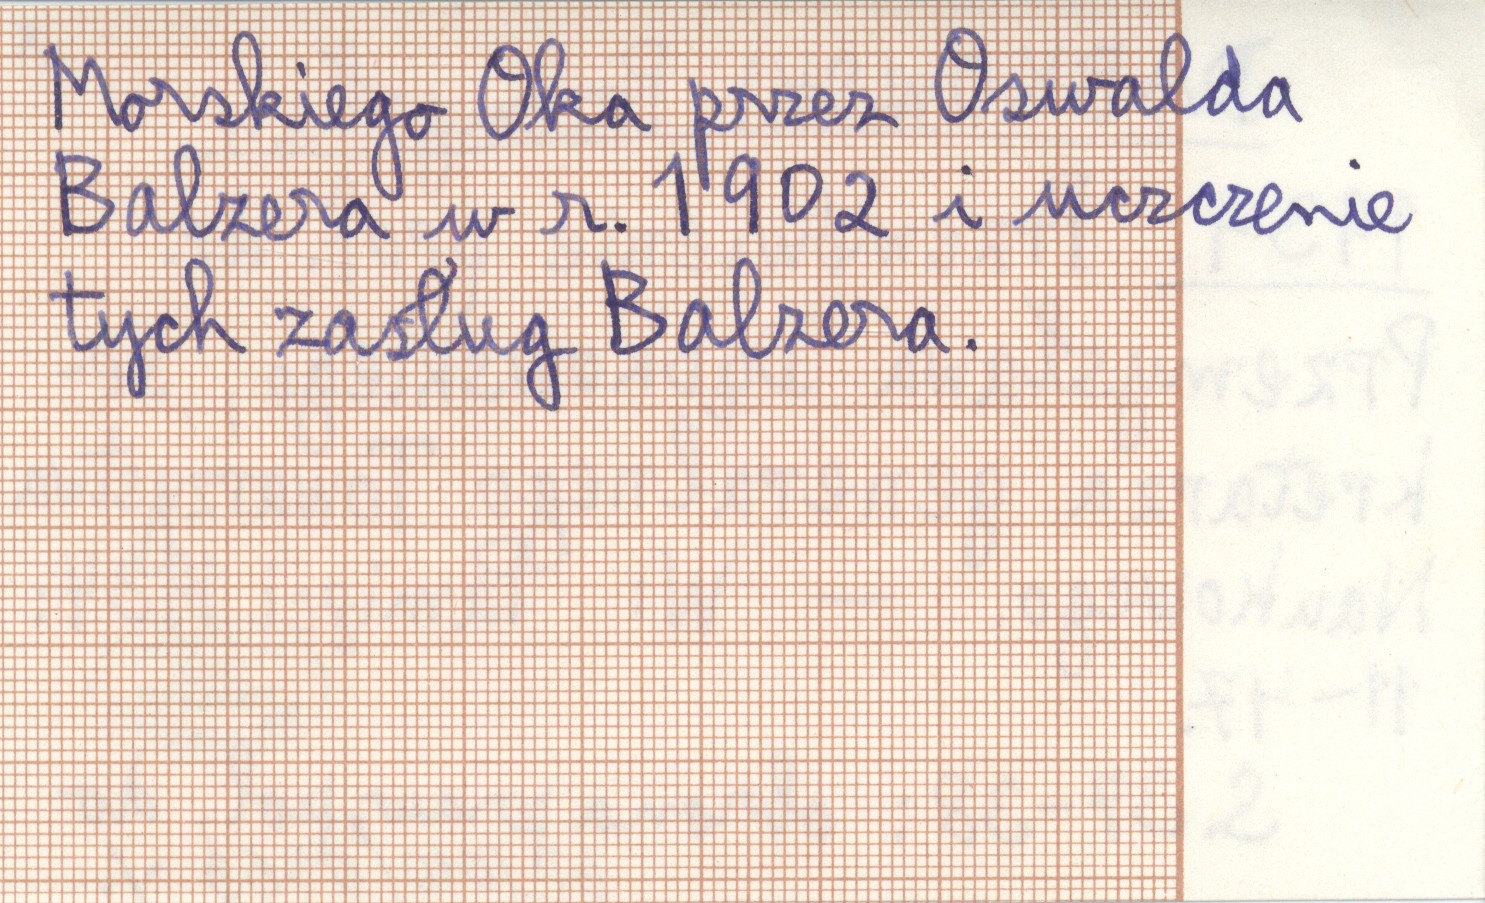 Morskiego Oka przez Oswalda
Balzera w r. 1902 i uczczenie
tych zasług Balzera.